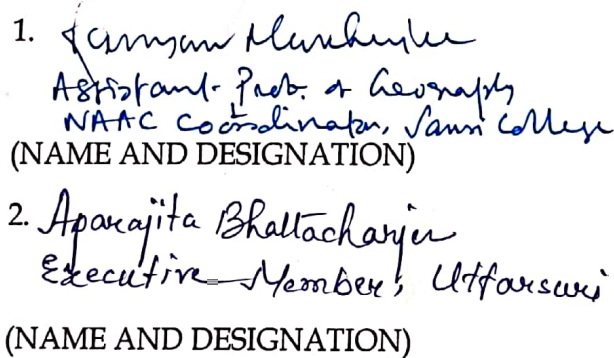 1. Mukherjee
Assistant Prof. of Geography
NAAC Coordinator, College
(NAME AND DESIGNATION)
2. Aparajita Bhattacharjee
Executive Member, Uttarsuri
(NAME AND DESIGNATION)